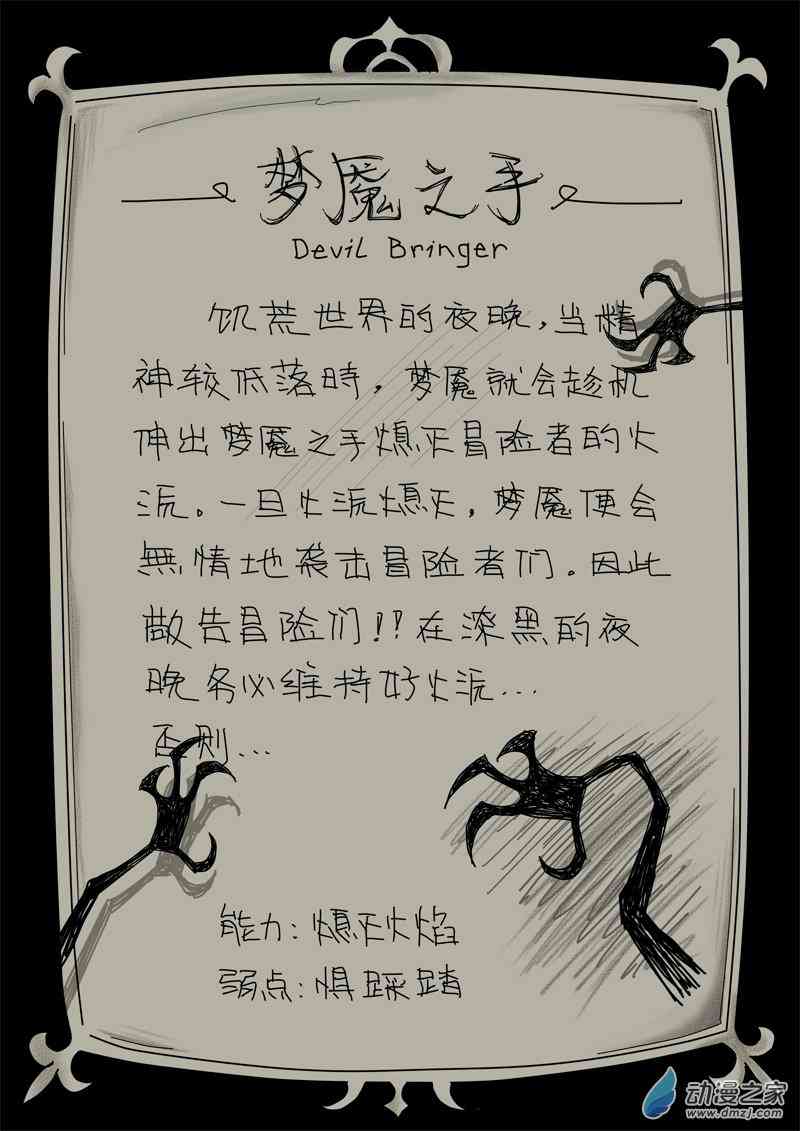 梦魇之手
Devil Bringer
饥荒世界的夜晚，当精
神较低落時，梦魇就会趁机
伸出梦魇之手熄灭冒险者的火
源。一旦火源熄灭，梦魇便会
無情地袭击冒险者们。因此
敬告冒险们!!在漆黑的夜
晚务必维持好火源...
否则...
能力：熄灭火焰
弱点：惧踩踏
动漫之家
www.dmzj.com